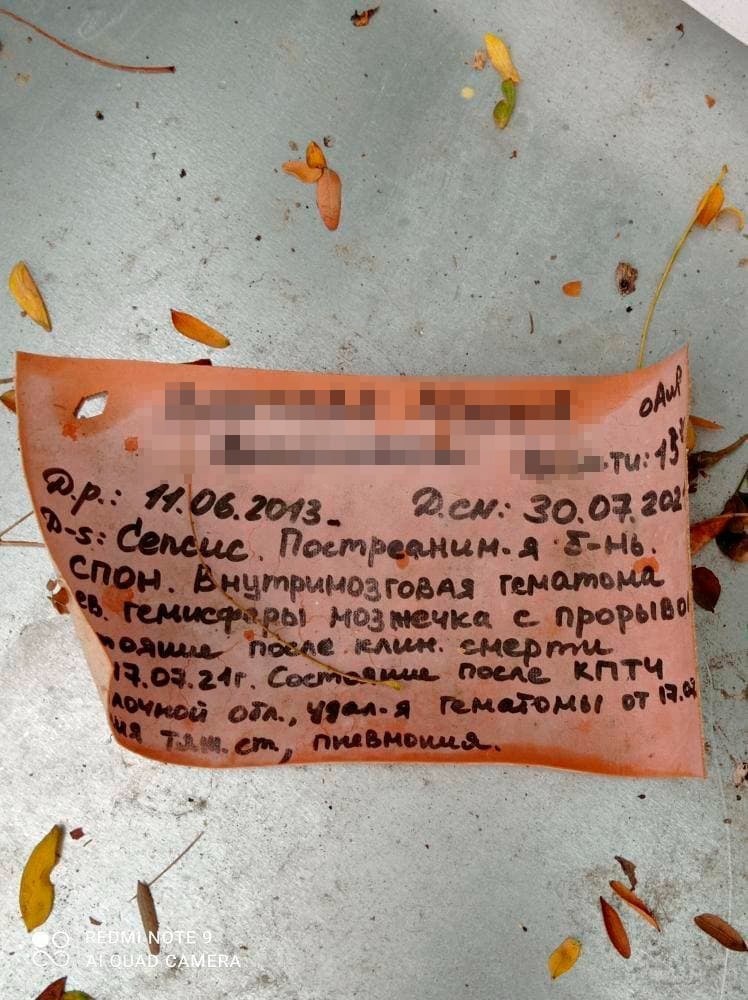 ОАиР
ти: 13
Д.р.: 11.06.2013. Д.см: 30.07.202
D-s: Сепсис. Постреаним-я б-нь.
СПОН. Внутримозговая гематома
ев. гемисферы мозжечка с прорыво
тояние после клин. смерти
17.07.21г. Состояние после КПТЧ
лочной обл., удал-я гематомы от 17.07
ия тяж. ст., пневмония.
REDMI NOTE 9
AI QUAD CAMERA